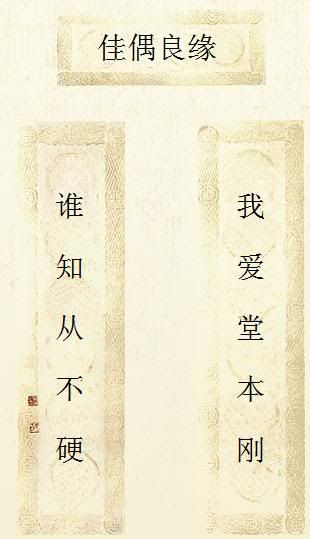 佳偶良缘
我爱堂本刚
谁知从不硬